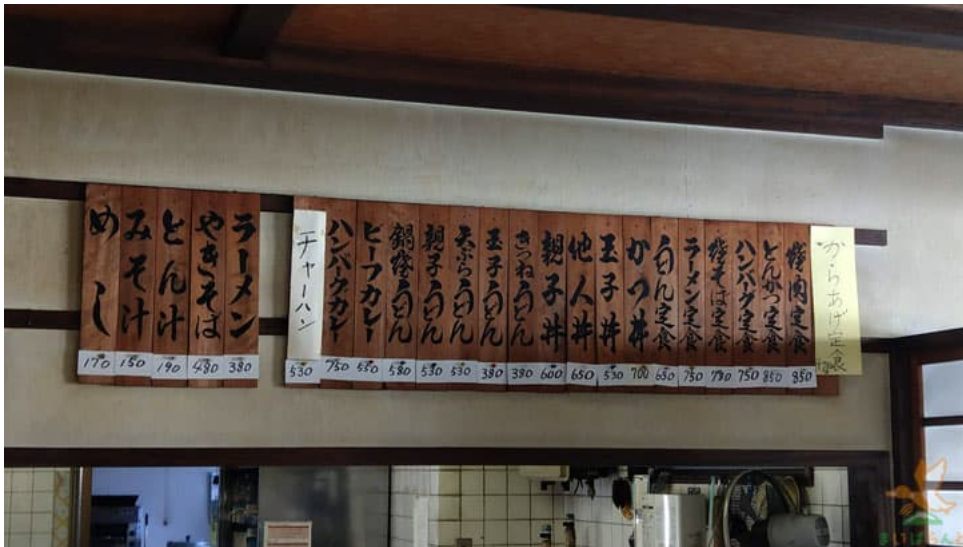 からあげ定食
焼肉定食
850
とんかつ定食
850
ハンバーグ定食
750
焼そば定食
780
ラーメン定食
750
うどん定食
650
かつ丼
700
玉子丼
530
他人丼
650
親子丼
600
きつねうどん
380
玉子うどん
380
天ぷらうどん
530
親子うどん
530
鍋焼うどん
580
ビーフカレー
550
ハンバーグカレー
750
チャーハン
530
ラーメン
380
やきそば
480
とん汁
190
みそ汁
150
めし
170
まいぱらんど